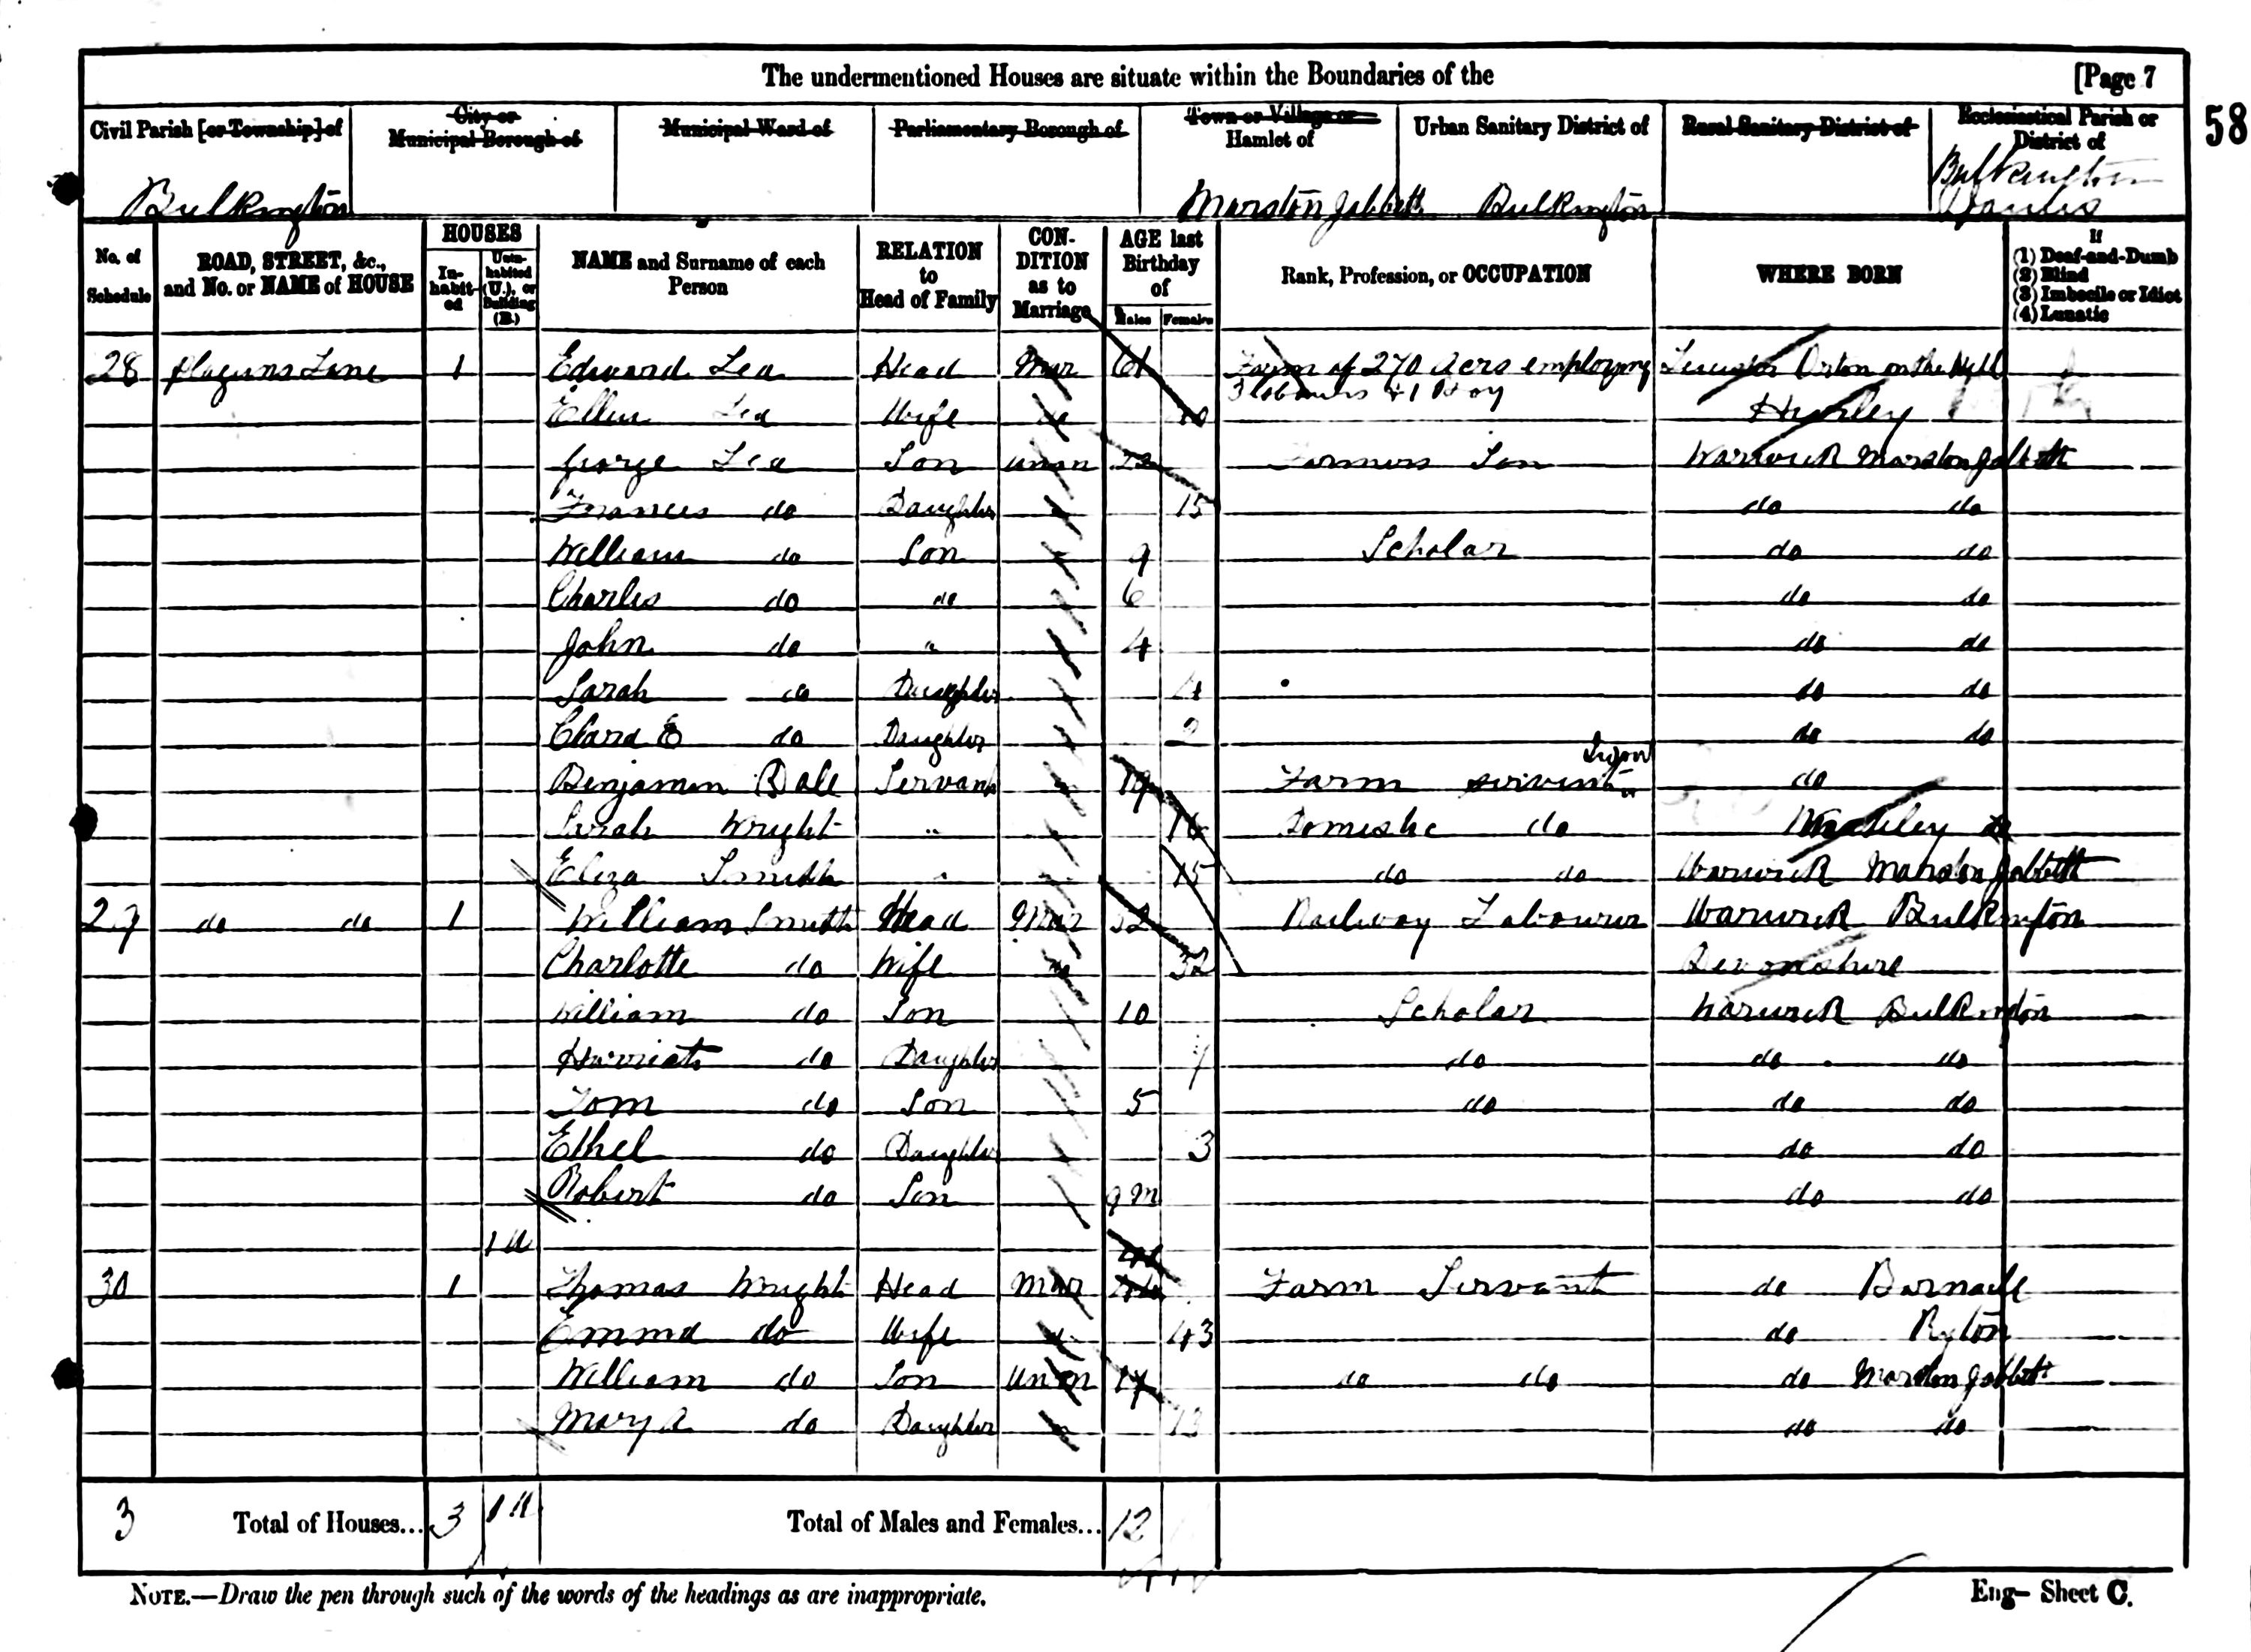 The undermentioned Houses are situate within the Boundaries of the [Page 7
58
Civil Parish [or Township] of
City or Municipal Borough of
Municipal Ward of
Parliamentary Borough of
Town or Village or Hamlet of
Urban Sanitary District of
Rural Sanitary District of
Ecclesiastical Parish or District of
Bulkington Marston Jabbett Bulkington Bulkington
No. of Schedule
ROAD, STREET, &c., and No. or NAME of HOUSE
HOUSES
In-habit-ed
Unin-habited (U.), or Building (B.)
NAME and Surname of each Person
RELATION to Head of Family
CON-DITION as to Marriage
AGE last Birthday of
Males Females
Rank, Profession, or OCCUPATION
WHERE BORN
If
(1) Deaf-and-Dumb
(2) Blind
(3) Imbecile or Idiot
(4) Lunatic
28 Lane 1 Edward Lea Head Mar 61 Farm of 270 Acrs employing Orton on the Hill
3 labourers & 1 Boy
Ellen Lea Wife do 40 Hurley
George Lea Son unm Farmers Son Warwick Marston Jabbett
Frances do Daughter 15 do do
William do Son 9 Scholar do do
Charles do do 6 do do
John do " 4 do do
Sarah do Daughter 4 do do
Clara E do Daughter 2 do do
Benjamin Bale Servant 19 Farm servant do
Sarah Wright " 16 Domestic do do
Eliza Smith " 15 do do Warwick Marston Jabbett
29 do do 1 William Smith Head Mar 32 Railway Labourer Warwick Bulkington
Charlotte do Wife do 32 Devonshire
William do Son 10 Scholar Warwick Bulkington
Harriett do Daughter 7 do do do
Tom do Son 5 do do do
Ethel do Daughter 3 do do
Robert do Son 9m do do
1 U
30 1 Thomas Wright Head Mar Farm Servant do Barnacle
Emma do Wife do 43 do Ryton
William do Son unm 17 do do do Marston Jabbett
Mary A do Daughter 13 do do
3 Total of Houses... 3 1 U Total of Males and Females... 12
NOTE.—Draw the pen through such of the words of the headings as are inappropriate.
Eng— Sheet C.